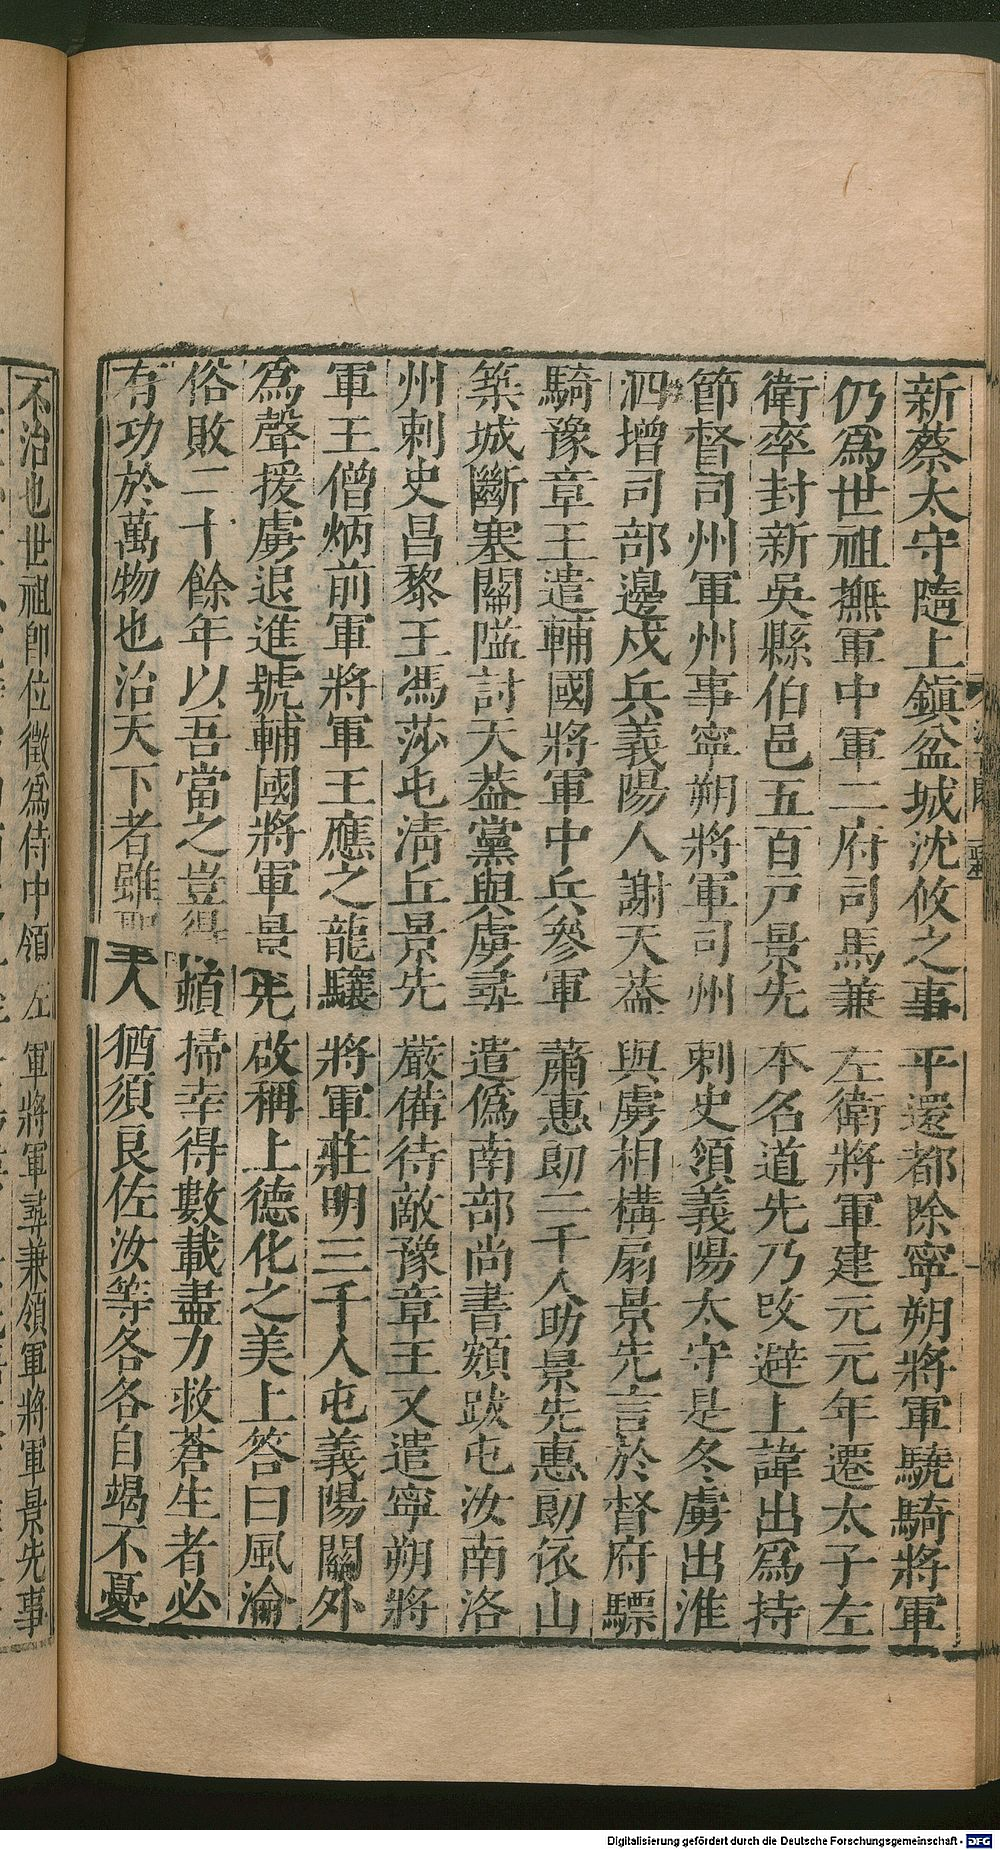 新蔡太守隨上鎮盆城沈攸之事平還都除寧朔將軍驍騎將軍
仍爲世祖撫軍中軍二府司馬兼左衛將軍建元元年遷太子左
衛率封新吳縣伯邑五百戸景先本名道先乃攺避上諱出爲持
節督司州軍州事寧朔將軍司州刺史領義陽太守是冬虜出淮
泗增司部邊戍兵義陽人謝天葢與虜相構扇景先言於督府驃
騎豫章王遣輔國將軍中兵參軍蕭惠朗二千人助景先惠朗依山
築城斷塞關隘討天葢黨與虜尋遣僞南部尚書頞跋屯汝南洛
州刺史昌黎王馮莎屯淸丘景先嚴備待敵豫章王又遣寧朔將
軍王僧炳前軍將軍王應之龍驤將軍莊明三千人屯義陽關外
爲聲援虜退進號輔國將軍景先啟稱上德化之美上答曰風淪
俗敗二十餘年以吾當之豈得頓掃幸得數載盡力救蒼生者必
有功於萬物也治天下者雖聖人猶須良佐汝等各各自竭不憂
不治也世祖即位徵爲侍中領左軍將軍尋兼領軍將軍景先事
Digitalisierung gefördert durch die Deutsche Forschungsgemeinschaft - DFG